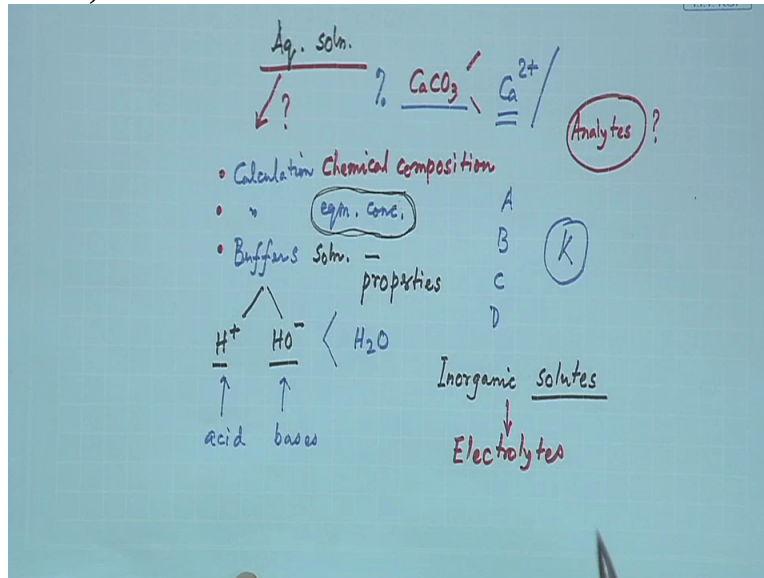 Aq. soln.
? % CaCO3 Ca2+
Analytes ?
• Calculation Chemical composition
• " eqm. conc. A
• Buffers soln. – B K
properties C
D
H+ HO– < H2O
Inorganic solutes
acid bases
Electrolytes